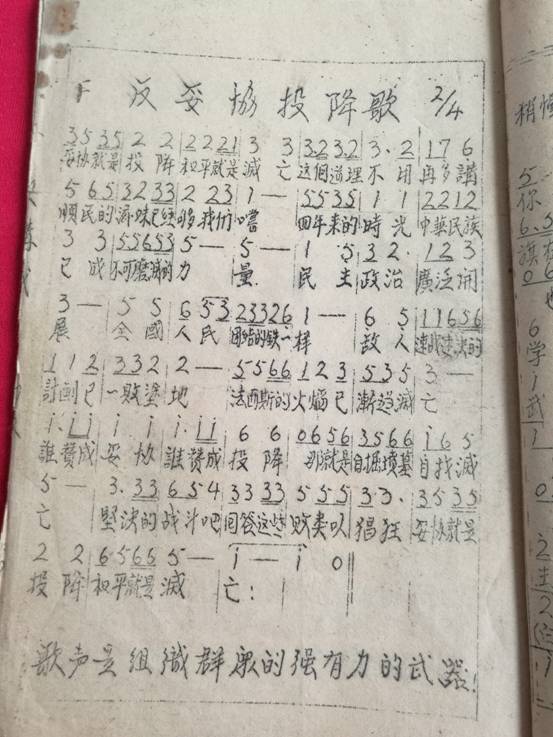 反妥協投降歌 2/4
3 5 3 5 2 2 2 2 2 1 3 3 3 2 3 2 3 · 2 1 7 6
妥协就是投降和平就是滅亡这個道理不用再多講
5 6 5 3 2 3 3 2 2 3 1 — 5 5 3 5 1 1 2 2 1 2
順民的滋味已經够多我們心嚐四年来的時光中華民族
3 3 5 5 6 5 3 5 — 5 — 1 5 3 2 · 1 2 3
已成不可磨滅的力量民主政治廣泛開
3 — 5 5 6 5 3 2 3 3 2 6 1 — 6 5 1 1 6 5 6
展全國人民團結的铁一样敌人速战速决的
1 1 2 3 3 2 2 — 5 5 6 6 1 2 3 5 3 5 3 —
計劃已一敗塗地法西斯的火焰已漸趋滅亡
1 · 1 1 1 1 1 · 1 1 6 6 0 6 5 6 3 5 6 6 1 6 5
誰贊成妥协誰贊成投降那就是自掘墳墓自找滅
5 — 3 · 3 3 6 5 4 3 3 3 3 5 5 5 3 3 · 3 5 3 5
亡堅決的战斗吧回答这些败类以猖狂妥协就是
2 2 6 5 6 6 5 — 1 — 1 0
投降和平就是滅亡:
歌声是組織群众的强有力的武器!
稍
5
你
旗
0 6
6
学
1
武
1
0
2
主
2